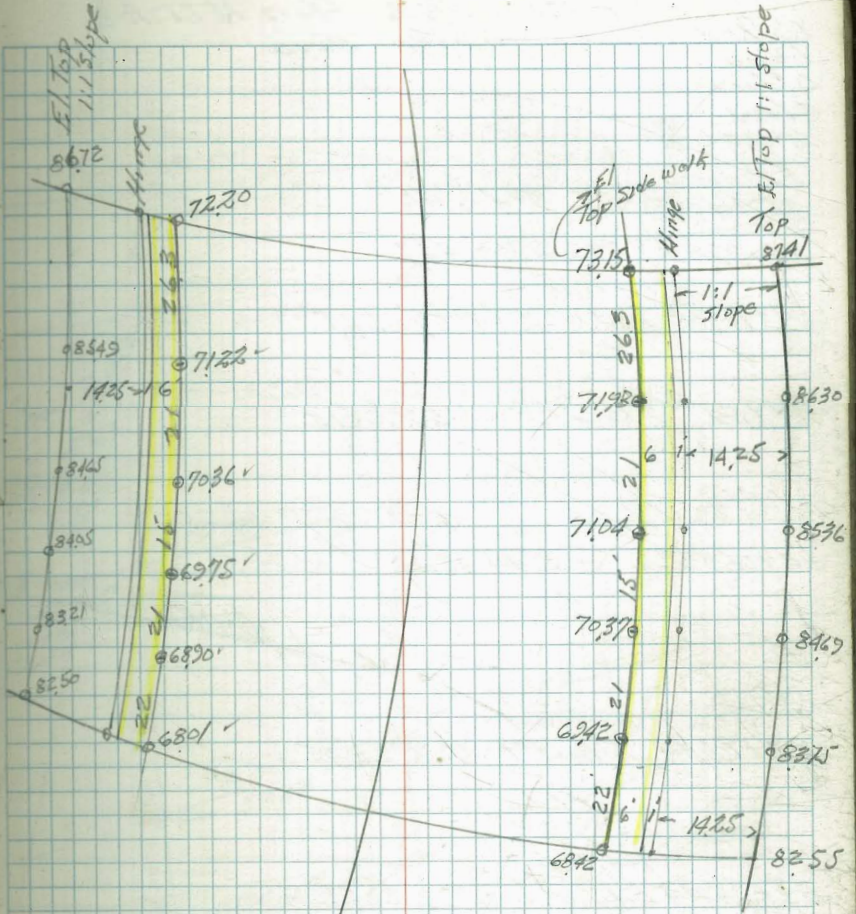 El. Top
1:1 Slope
8672
Hinge
7220
26.3
8549
7122
1425
6'
21
8465
7036
8405
15
6975
8321
21
6890
8250
22
6801
El
Top Side walk
Hinge
El Top 1:1 Slope
Top
8741
7315
1:1
Slope
26.3
7193
8630
6
1'
14.25
21
7104
8536
15'
7037
8469
21
6942
8375
22
6'
1'
1425
6842
8255